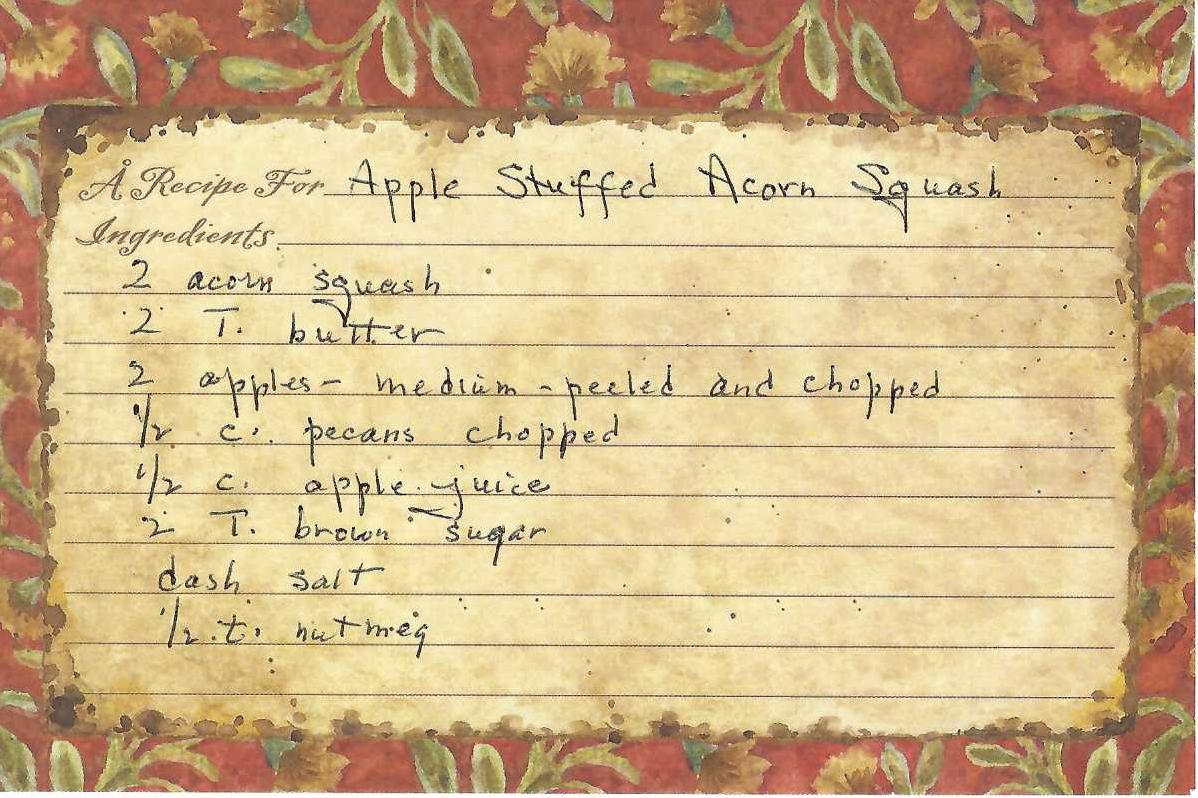 A Recipe For Apple Stuffed Acorn Squash
Ingredients
2 acorn squash
2 T. butter
2 apples - medium - peeled and chopped
1/2 c. pecans chopped
1/2 c. apple juice
2 T. brown sugar
dash salt
1/2 t. nutmeg